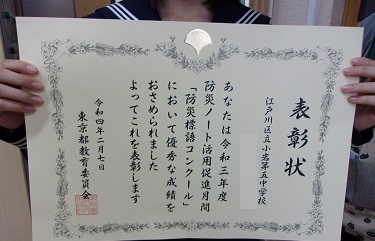 表彰状
江戸川区立小岩第五中学校
あなたは令和三年度
防災ノート活用促進月間
「防災標語コンクール」
において優秀な成績を
おさめられました
よってこれを表彰します
令和四年二月七日
東京都教育委員会